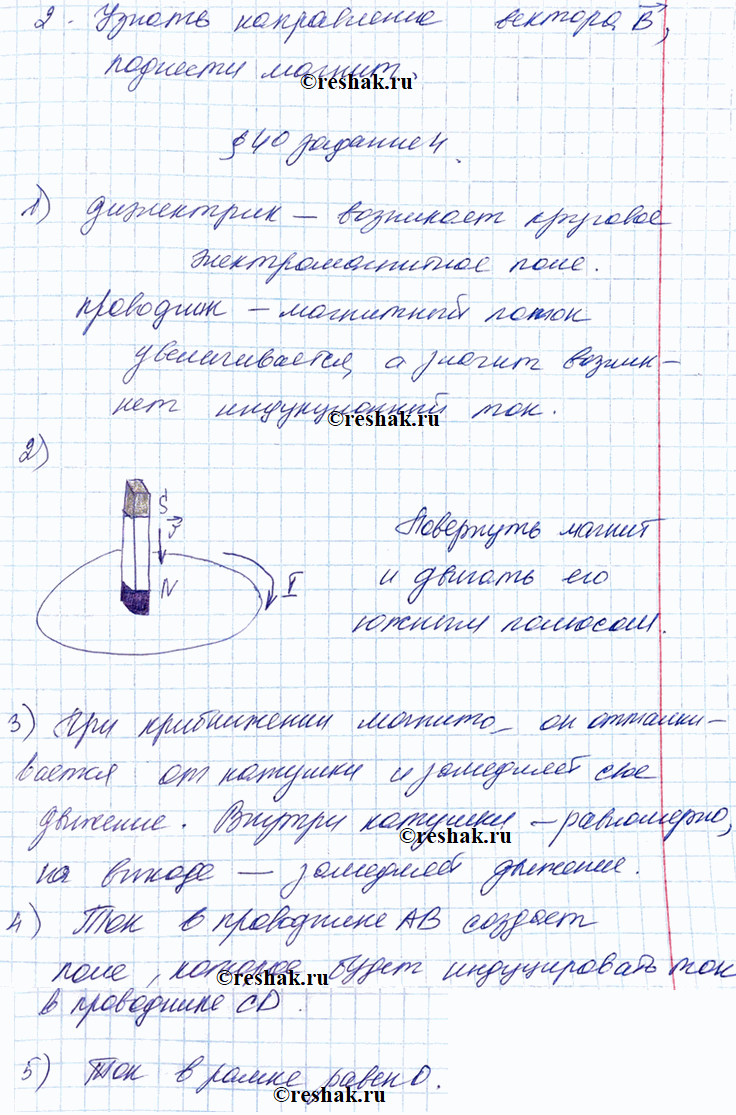 2. Узнать направление вектора B,
поднести магнит.
©reshak.ru
§40 задание 4.
1) диэлектрик – возникает круговое
электромагнитное поле.
проводник – магнитный поток
увеличивается, а значит возник-
нет индукционный ток.
©reshak.ru
2)
S
v
N
I
Повернуть магнит
и двигать его
южным полюсом.
3) При приближении магнита он отталки-
вается от катушки и замедляет свое
движение. Внутри катушки – равномерно,
©reshak.ru
на выходе – замедляет движение.
4) Ток в проводнике AB создает
поле, которое будет индуцировать ток
©reshak.ru
в проводнике CD.
5) Ток в рамке равен 0.
©reshak.ru